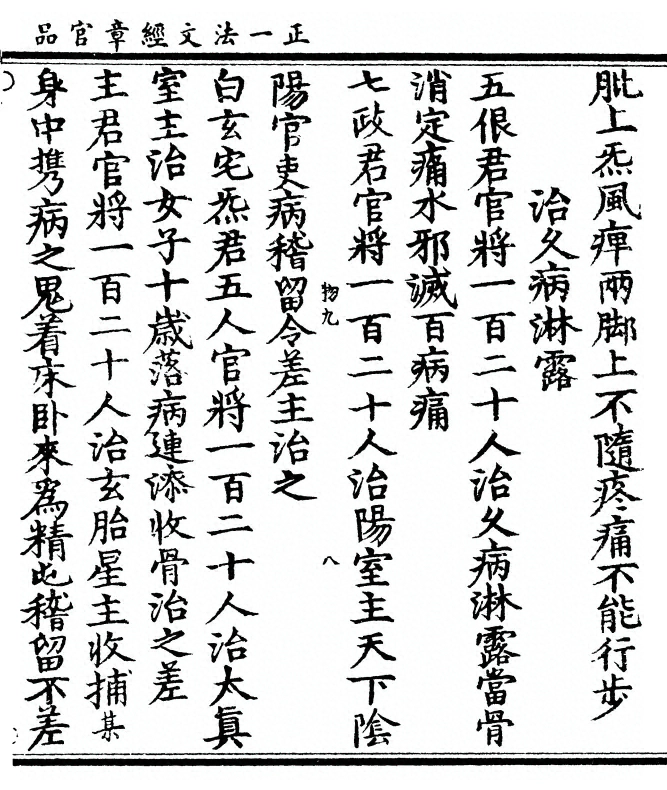 正一法文經章官品
肶上炁風痺兩脚上不隨疼痛不能行步
治久病淋露
五佷君官將一百二十人治久病淋露當骨
消定痛水邪滅百病痛
七政君官將一百二十人治陽室主天下陰
物九
八
陽官吏病稽留令差主治之
白玄宅炁君五人官將一百二十人治太真
室主治女子十歲落病連添收骨治之差
主君官將一百二十人治玄胎星主收捕某
身中携病之鬼着床卧來為精屯稽留不差